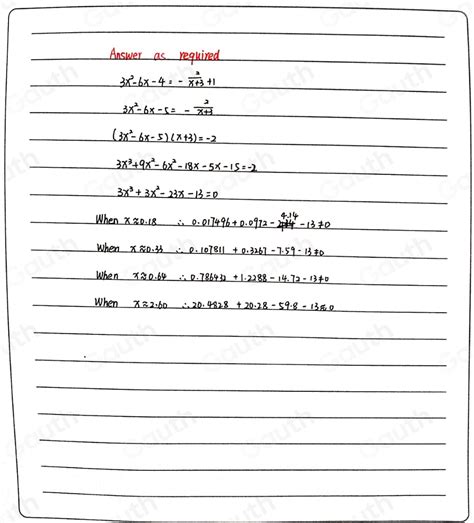 Answer as required
3x²-6x-4 = -2/(x+3) +1
3x²-6x-5 = -2/(x+3)
(3x²-6x-5)(x+3)=-2
3x³+9x²-6x²-18x-5x-15=-2
3x³+3x²-23x-13=0
When x≈0.18 ∴ 0.017496+0.0972-4.14-13≠0
When x≈0.33 ∴ 0.107811+0.3267-7.59-13≠0
When x≈0.64 ∴ 0.786432+1.2288-14.72-13≠0
When x≈2.60 ∴ 20.4828+20.28-59.8-13≈0